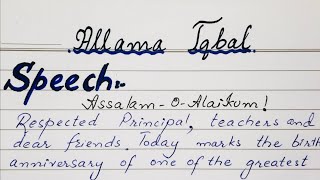 .Allama Iqbal.
Speech:-
Assalam-O-Alaikum!
Respected Principal, teachers and
dear friends. Today marks the birth
anniversary of one of the greatest